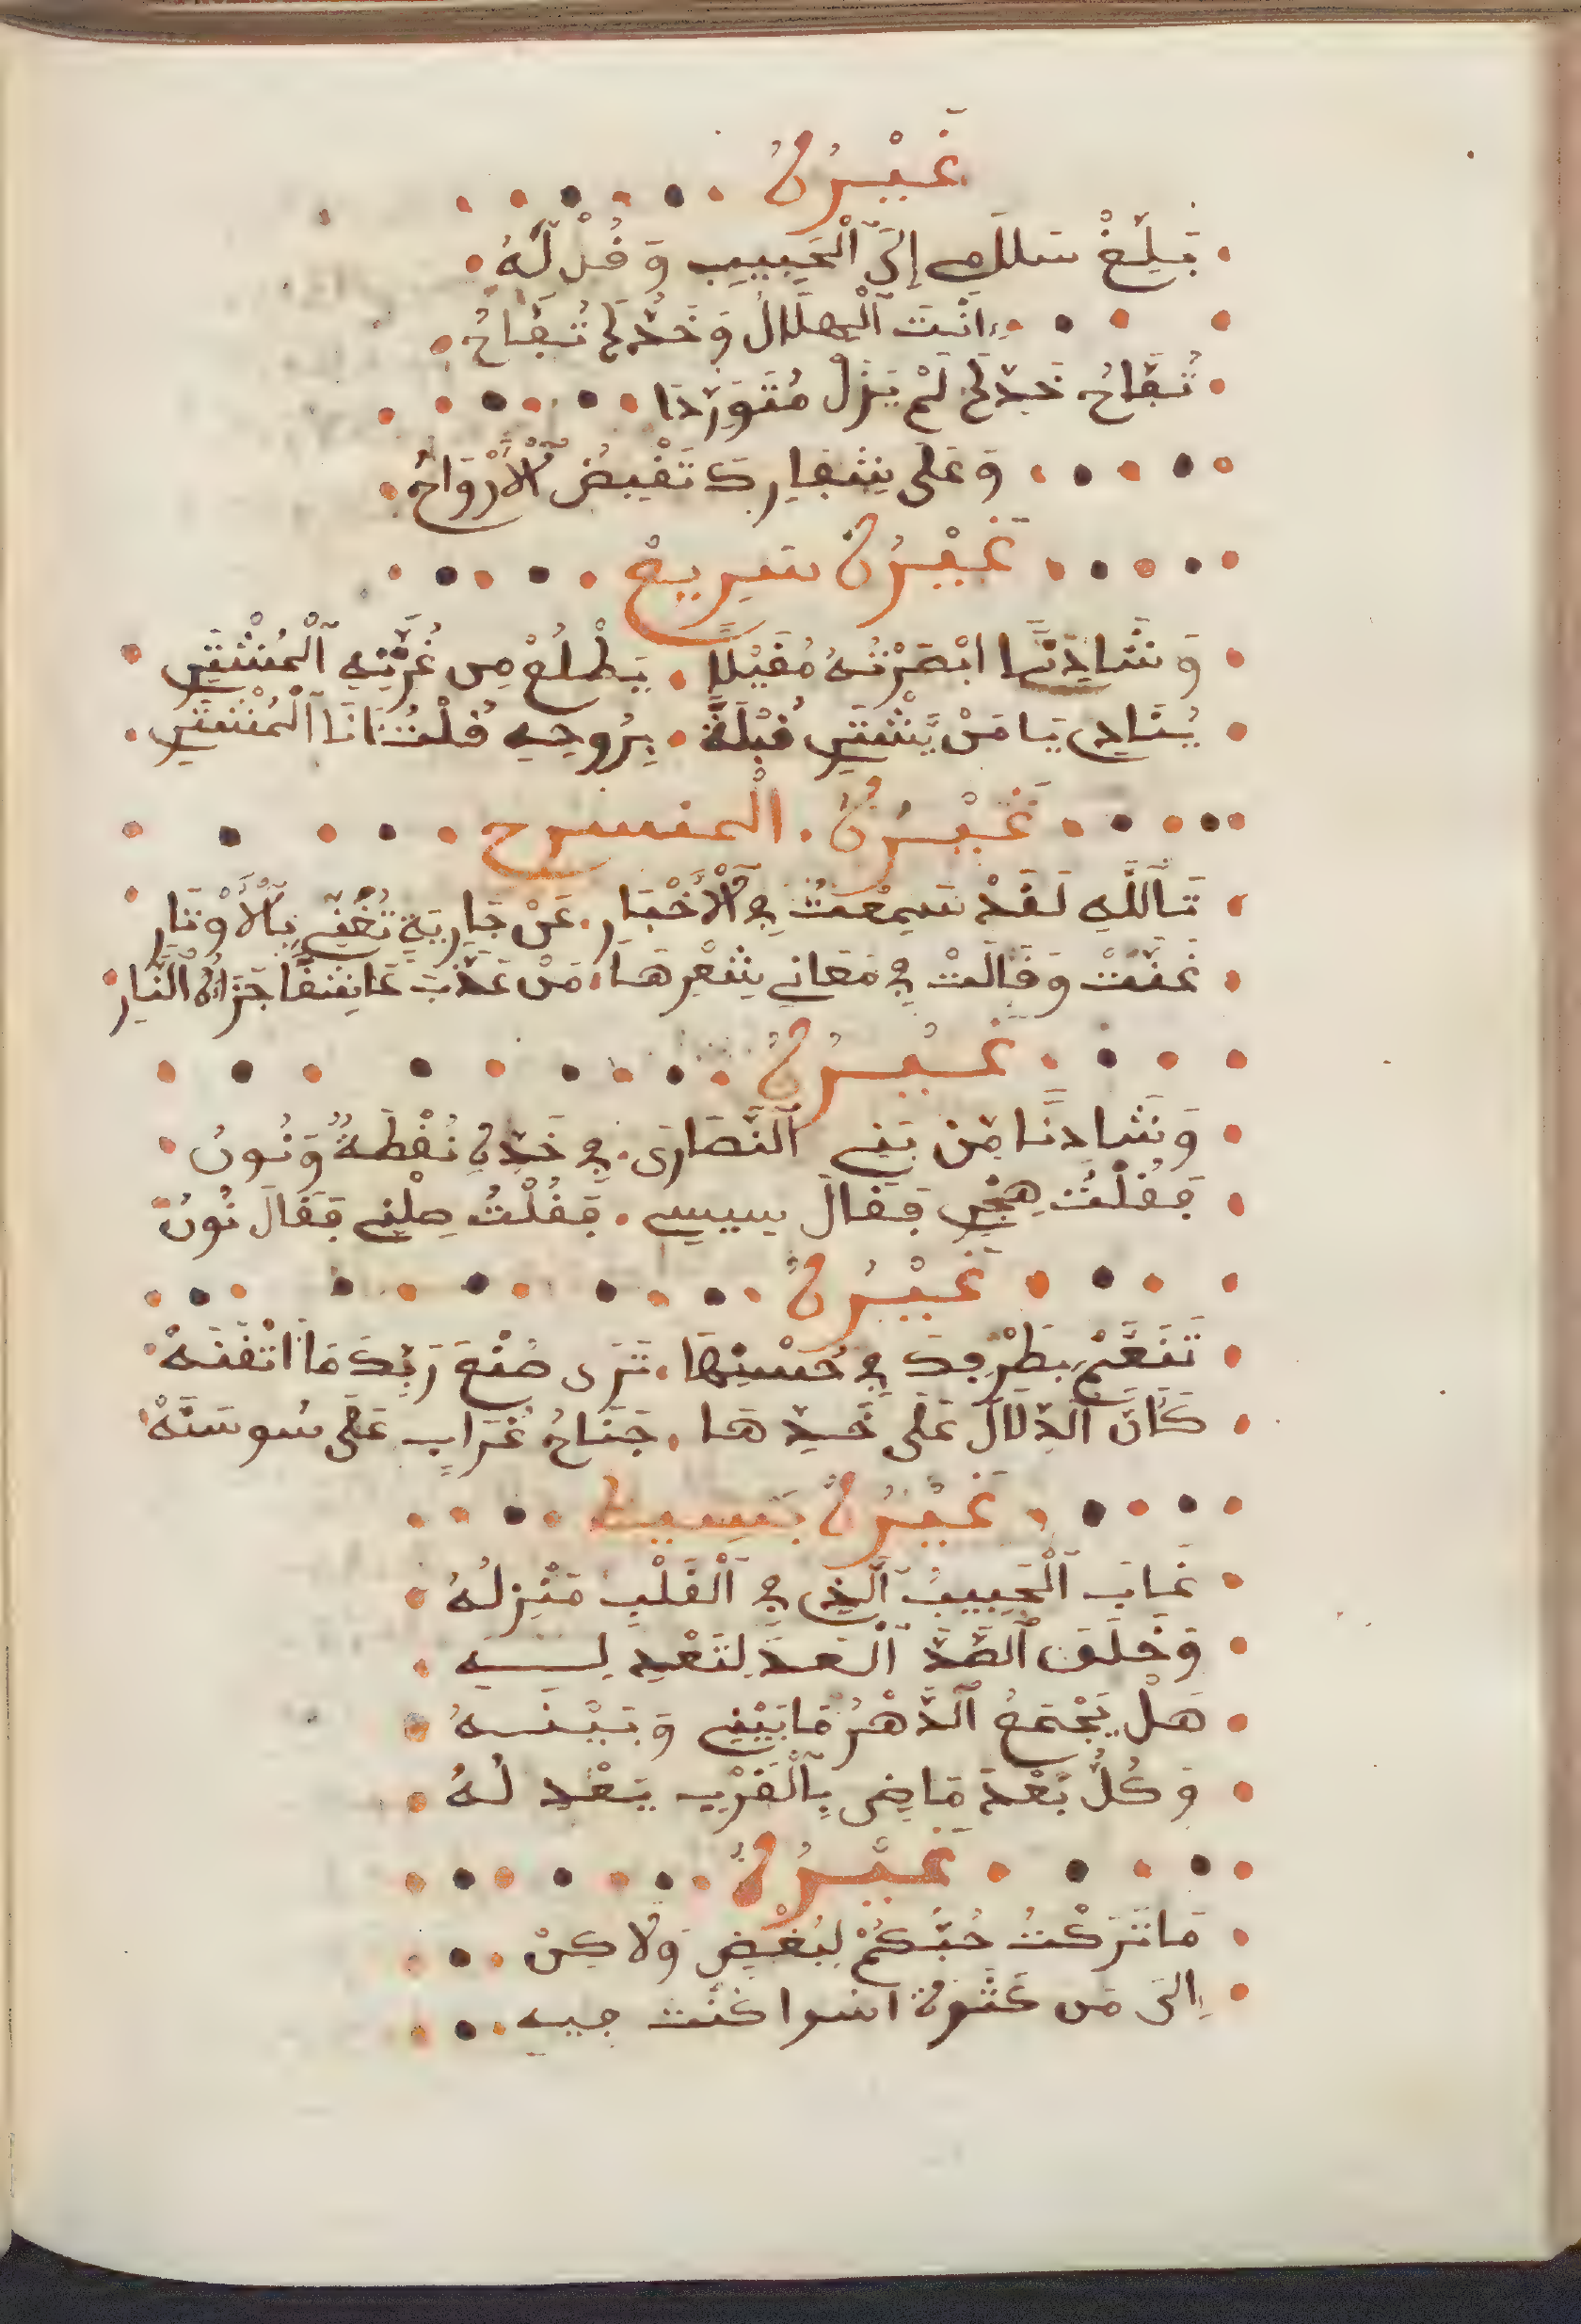 غَيْرُهُ
بَلِّغْ سَلَامِي إِلَى ٱلْحَبِيبِ وَقُل لَّهُ
اَنْتَ ٱلْهِلَالُ وَخَدُّكَ تُفَّاحُ
تُفَّاحُ خَدِّكَ لَمْ يَزَلْ مُتَوَرِّدَا
وَعَلَى شِفَارِكَ تَفِيضُ ٱلْأَرْوَاحُ
غَيْرُهُ سَرِيعْ
وَشَادِنًا ابْصَرْتُهُ مُقْبِلًا يَطْلُعْ مِن غُرَّتِهِ ٱلْمُشْتَرِي
يُنَادِي يَا مَنْ يَّشْتَرِي قُبْلَةً بِرُوحِهِ قُلْتُ انَا ٱلْمُشْتَرِي
غَيْرُهُ الْمنسرح
تَٱللَّهِ لَقَدْ سَمِعْتُ فِي ٱلْأَخْبَارِ عَنْ جَارِيَةٍ تُغَنِّي بِٱلْأَوْتَارِ
غَنَّتْ وَقَالَتْ فِي مَعَانِي شِعْرِهَا مَنْ عَذَّبَ عَاشِقًا جَزَاهُ ٱلنَّارِ
غَيْرُهُ
وَشَادِنًا مِّن بَنِي ٱلنَّصَارَى فِي خَدِّهِ نُقْطَةٌ وَنُونُ
فَقُلْتُ هِجْرِي فَقَالَ سِيسِي فَقُلْتُ صِلْنِي فَقَالَ نُونُ
غَيْرُهُ
تَنَعَّمْ بِطَرْفِكَ فِي حُسْنِهَا تَرَى صُنْعَ رَبِّكَ مَا اتْقَنَهْ
كَأَنَّ ٱلدَّلَالَ عَلَى خَدِّهَا جَنَاحُ غُرَابٍ عَلَى سُوسَنَهْ
غَيْرُهُ بَسِيط
غَابَ ٱلْحَبِيبُ ٱلَّذِي فِي ٱلْقَلْبِ مَنْزِلُهُ
وَخَلَّفَ ٱلصَّدَّ
هَلْ يَجْمَعُ ٱلدَّهْرُ مَا بَيْنِي وَبَيْنَهُ
وَكُلُّ بُعْدَ مَاضِي بِٱلْقَرْبِ يَعْدِ لُهُ
غَيْرُهُ
مَا تَرَكْتُ حُبَّكُمْ لِبُغْضٍ وَلَاكِنْ
إِلَى مَن كنت فيه